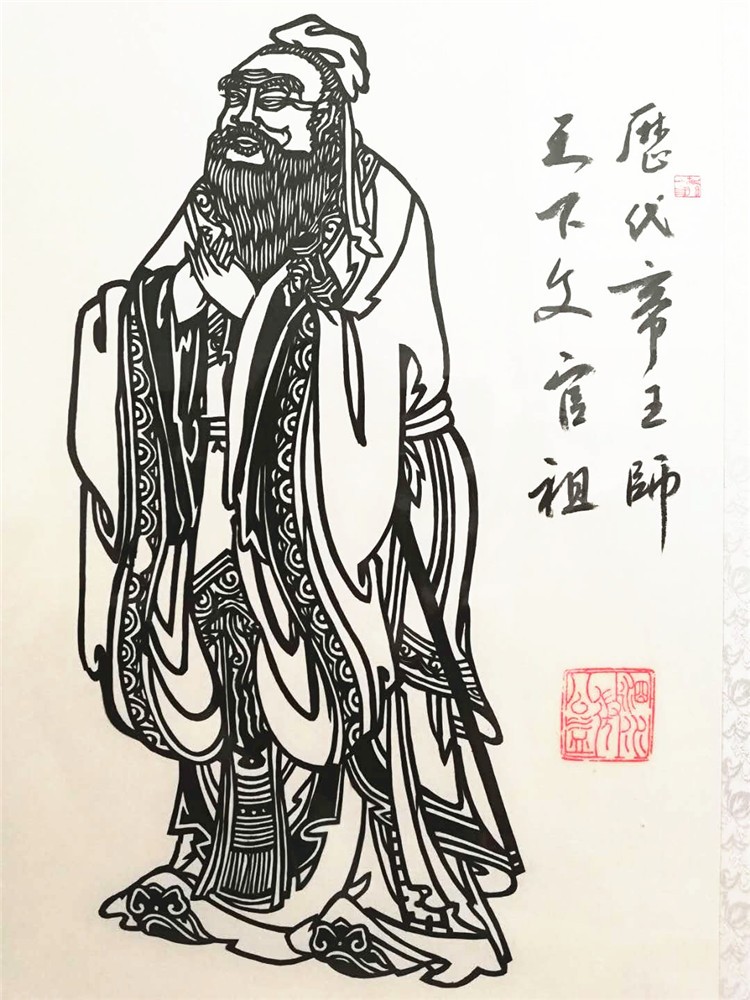 歷代帝王師
天下文官祖